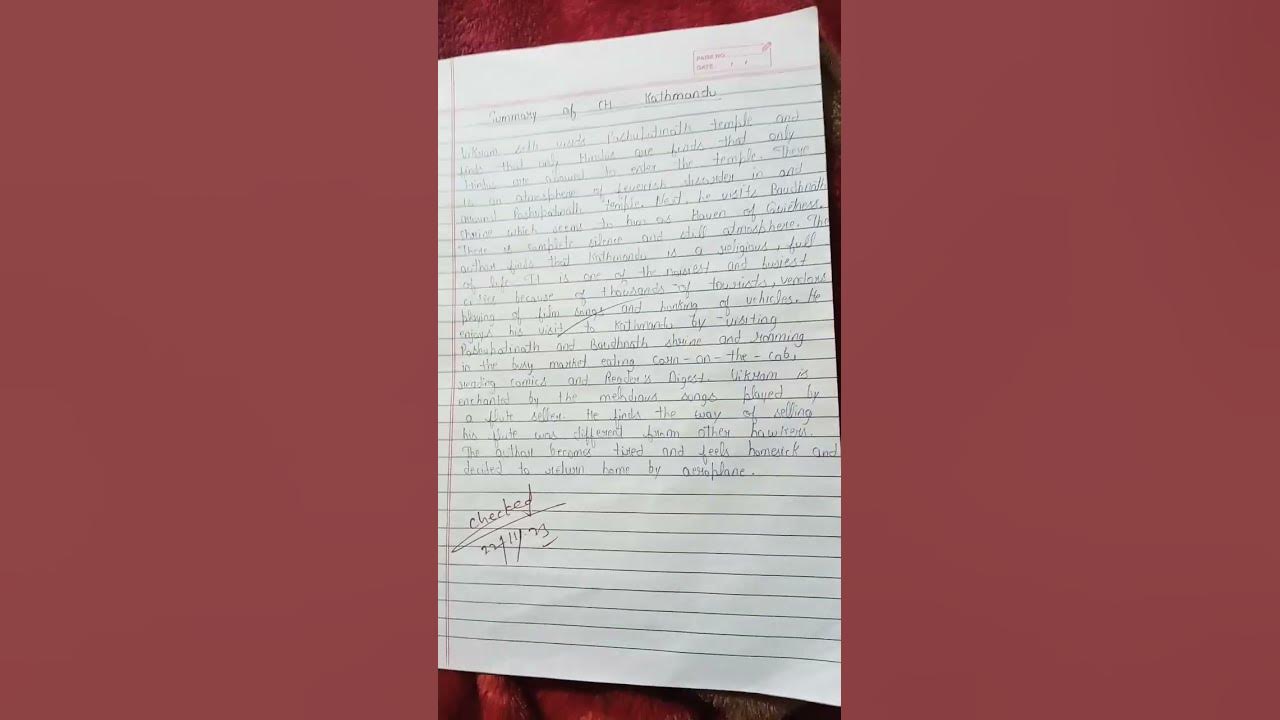 PAGE NO.
DATE
Summary of CH Kathmandu
Vikram seth visits Pashupatinath temple and
finds that only Hindus are finds that only
Hindus are allowed to enter the temple. There
is an atmosphere of feverish disorder in and
around Pashupatinath temple. Next, he visits Baudhnath
shrine which seems to him as Haven of Quietness.
There is complete silence and still atmosphere. The
author finds that Kathmandu is a religious, full
of life. It is one of the noisiest and busiest
cities because of thousands of tourists, vendors
playing of film songs and honking of vehicles. He
enjoys his visit to Kathmandu by visiting
Pashupatinath and Baudhnath shrine and roaming
in the busy market eating corn-on-the-cob,
reading comics and Reader's Digest. Vikram is
enchanted by the melodious songs played by
a flute seller. He finds the way of selling
his flute was different from other hawkers.
The author becomes tired and feels homesick and
decided to return home by aeroplane.
checked
22/11/23